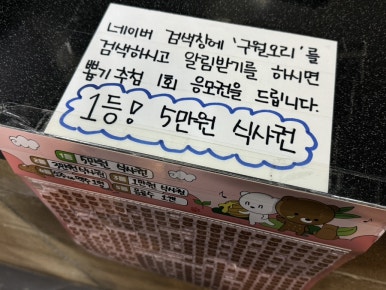 네이버 검색창에 '구월오리'를
검색하시고 알림받기를 하시면
뽑기 추첨 1회 응모권을 드립니다.
1등! 5만원 식사권
1등 5만원 식사권
3만원 식사권
1만원 식사권